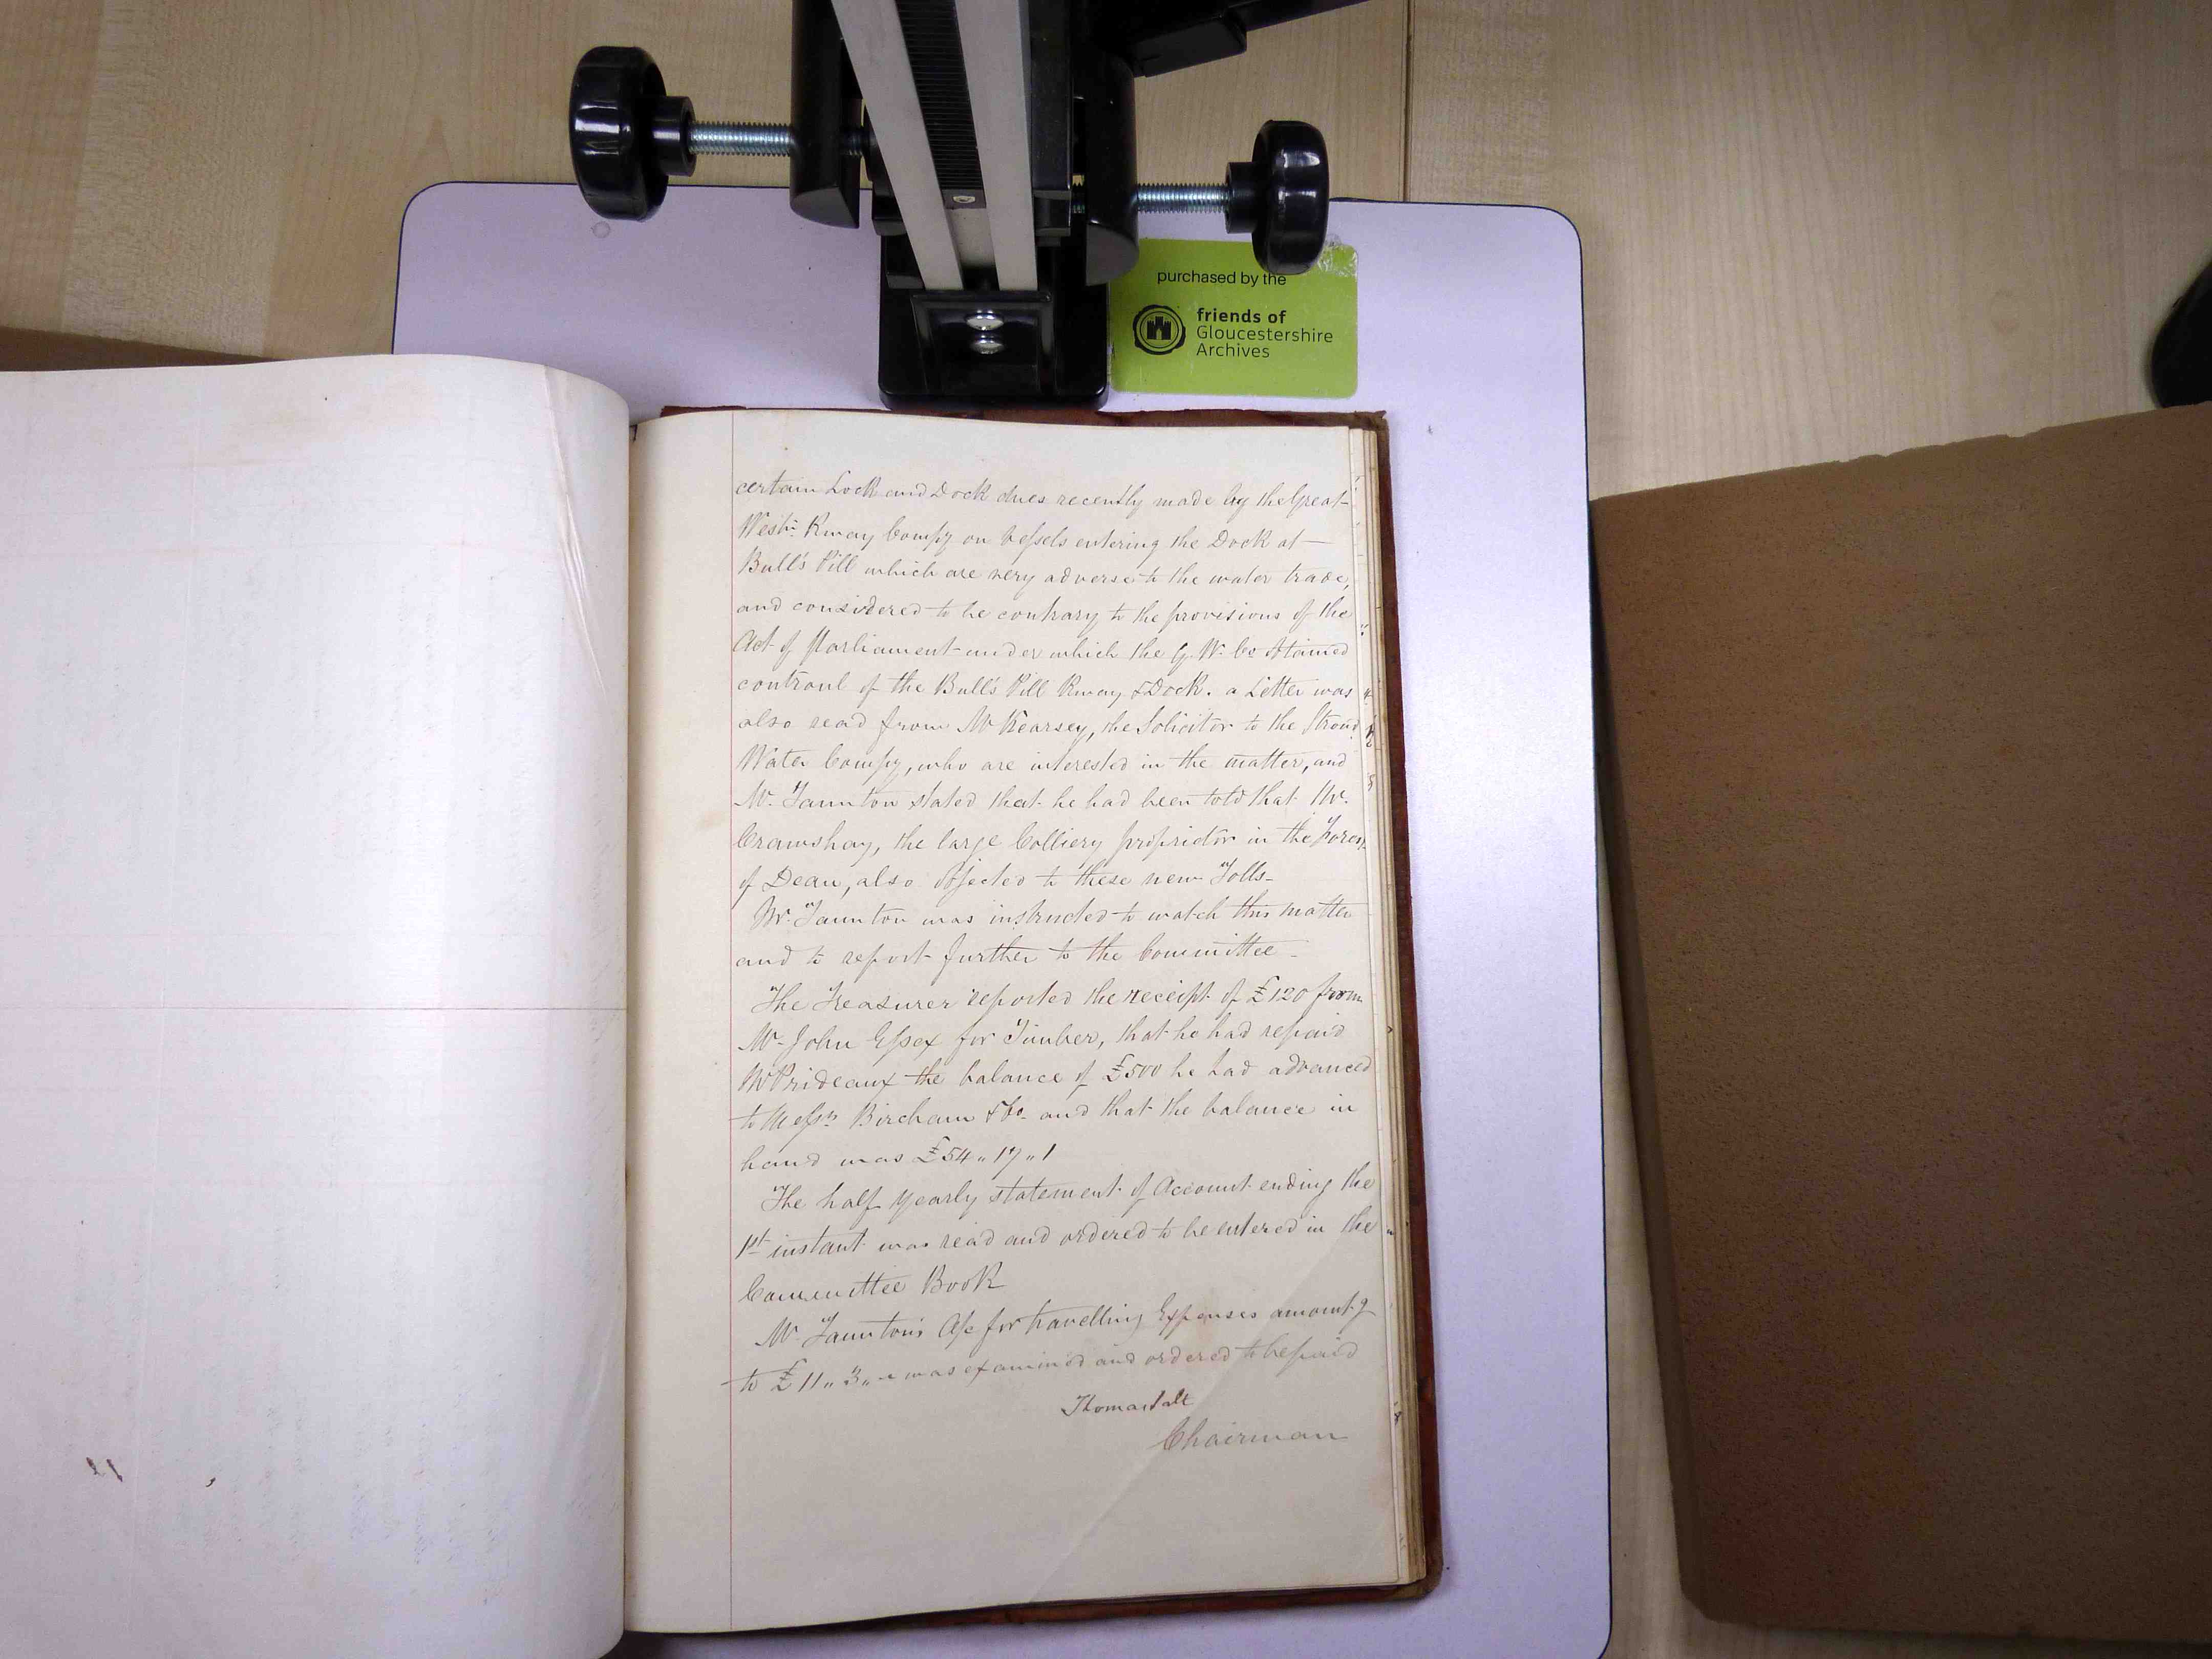 purchased by the
friends of
Gloucestershire
Archives
certain Lock and Dock dues recently made by the Great
Westn. Rway Compy on vessels entering the Dock at
Bull's Pill which are very adverse to the water trade,
and considered to be contrary to the provisions of the
Act of Parliament under which the G. W. Co obtained
controul of the Bull's Pill Rway & Dock. a Letter was
also read from Mr Kearsey, the Solicitor to the Stroud
Water Compy, who are interested in the matter, and
Mr. Taunton stated that he had been told that Mr.
Crawshay, the large Colliery proprietor in the Forest
of Dean, also objected to these new Tolls-
Mr. Taunton was instructed to watch this matter
and to report further to the Committee-
The Treasurer reported the receipt of £120 from
Mr John Essex for Timber, that he had repaid
Mr Prideaux the balance of £500 he had advanced
to Messrs Bircham & Co. and that the balance in
hand was £54 " 17 " 1
The half yearly statement of Account ending the
1st instant was read and ordered to be entered in the
Committee Book
Mr Taunton's A/c for travelling Expenses amountg
to £11 " 3 " - was examined and ordered to be paid
Thomas
Chairman